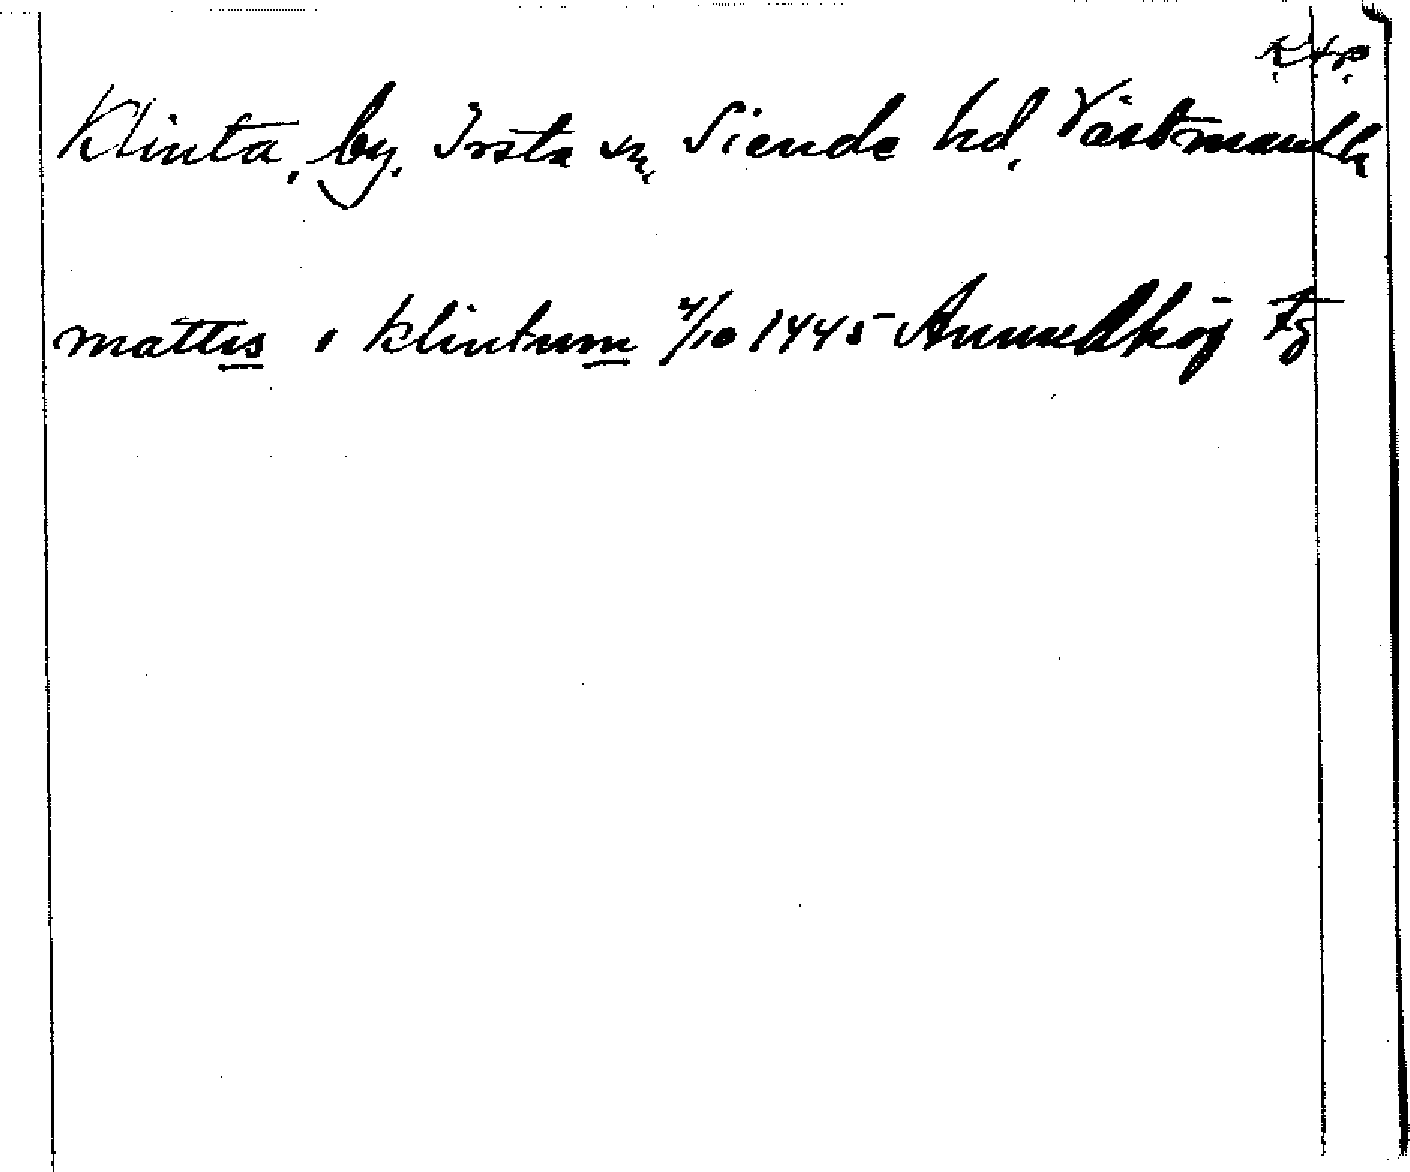 K+P.
Klinta, by. Irsta sn, Siende hd, Västmanl.
mattis i klintum 4/10 1445 Anundhög Fg